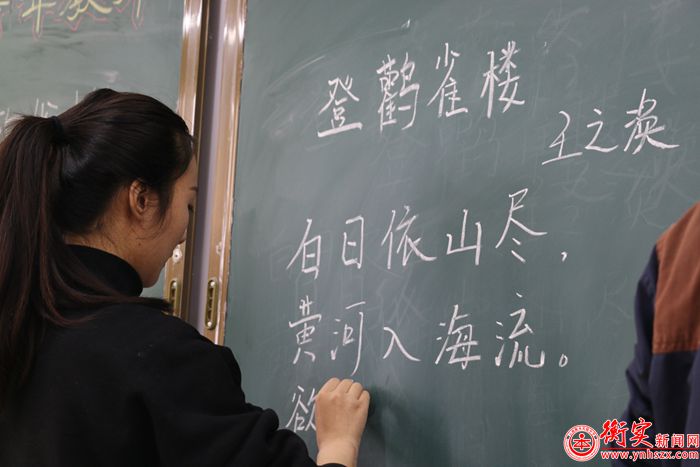 登鹳雀楼
王之涣
白日依山尽，
黄河入海流。
欲
衡实新闻网
www.ynhszx.com